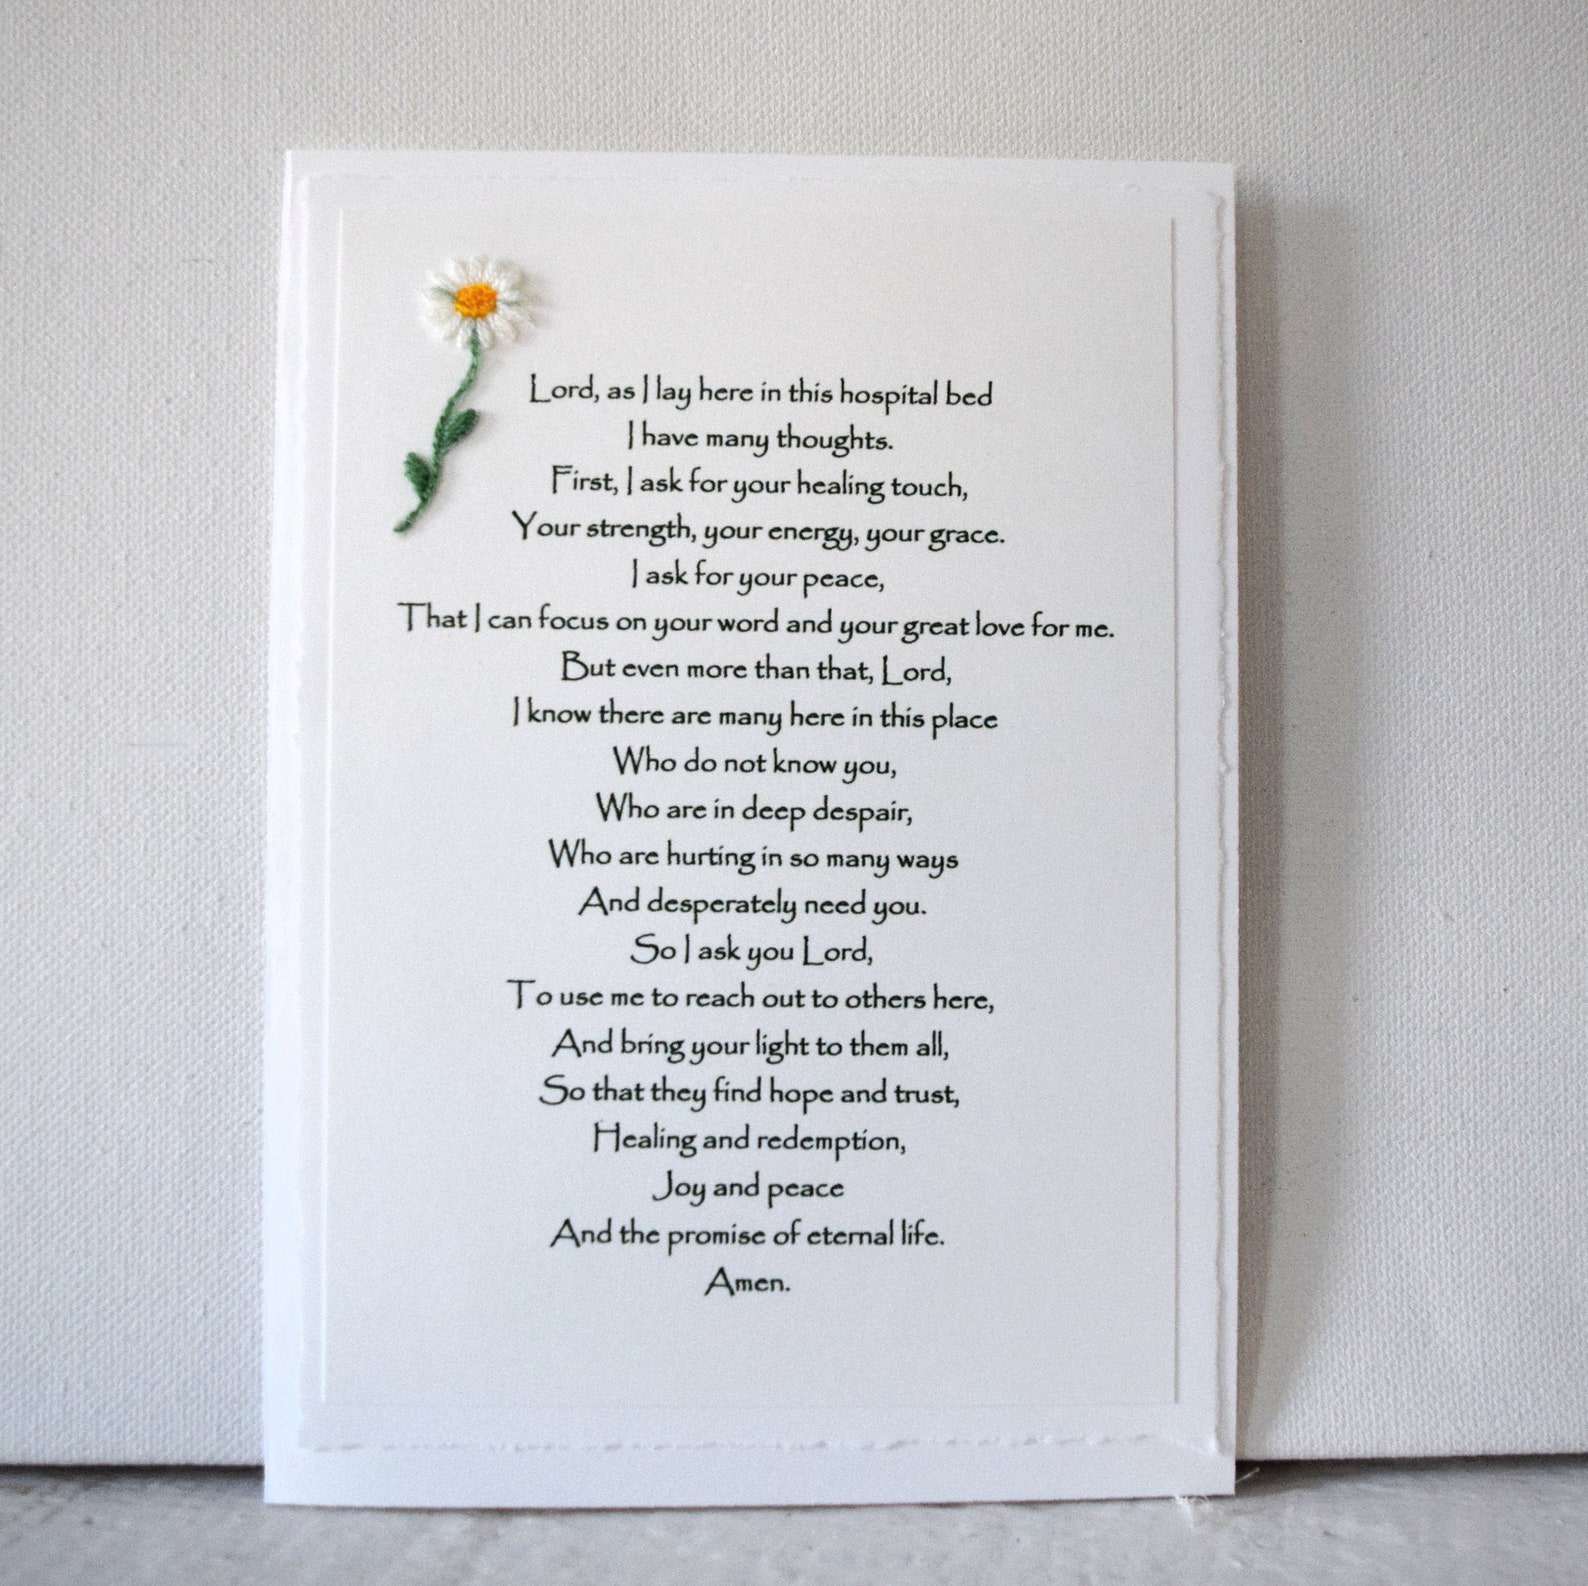 Lord, as I lay here in this hospital bed
I have many thoughts.
First, I ask for your healing touch,
Your strength, your energy, your grace.
I ask for your peace,
That I can focus on your word and your great love for me.
But even more than that, Lord,
I know there are many here in this place
Who do not know you,
Who are in deep despair,
Who are hurting in so many ways
And desperately need you.
So I ask you Lord,
To use me to reach out to others here,
And bring your light to them all,
So that they find hope and trust,
Healing and redemption,
Joy and peace
And the promise of eternal life.
Amen.